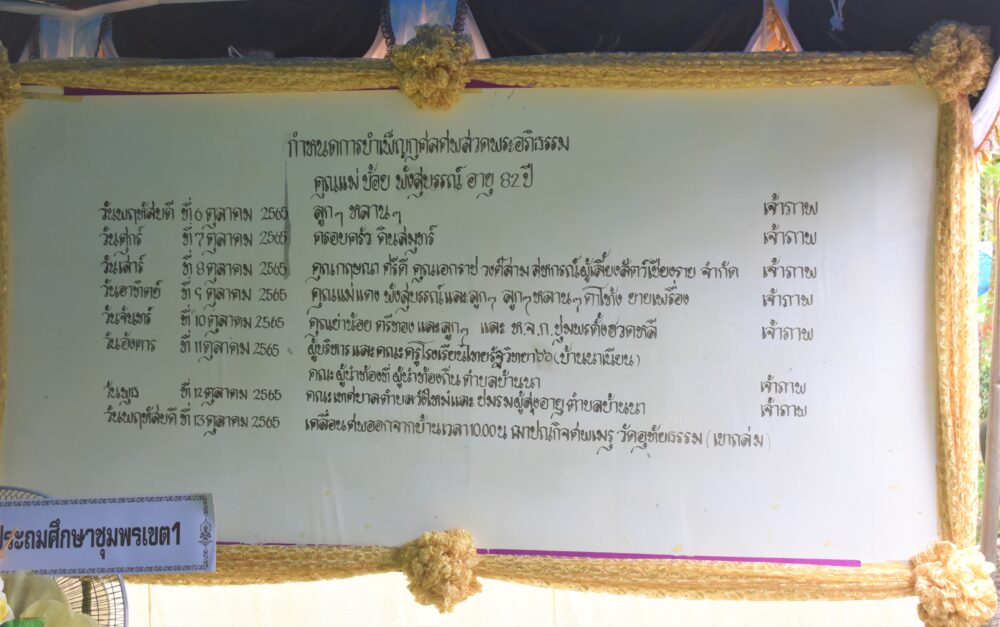 กำหนดการบำเพ็ญกุศลศพสวดพระอภิธรรม
คุณแม่ ย้อย พังสุบรรณ์ อายุ 82 ปี
วันพฤหัสบดี ที่ 6 ตุลาคม 2565 ลูกๆ หลานๆ เจ้าภาพ
วันศุกร์ ที่ 7 ตุลาคม 2565 ครอบครัว ดินสมุทร์ เจ้าภาพ
วันเสาร์ ที่ 8 ตุลาคม 2565 คุณกฤษณา ศรีดี คุณเอกราช วงค์สาม สหกรณ์ผู้เลี้ยงสัตว์เชียงราย จำกัด เจ้าภาพ
วันอาทิตย์ ที่ 9 ตุลาคม 2565 คุณแม่แดง พังสุบรรณ์และลูกๆ ลูกๆหลานๆ ยายเพรื่อง เจ้าภาพ
วันจันทร์ ที่ 10 ตุลาคม 2565 คุณย่าน้อย ศรีทอง และลูกๆ และ ห.จ.ก. ชุมพรตั้งฮวดหลี เจ้าภาพ
วันอังคาร ที่ 11 ตุลาคม 2565 ผู้บริหาร และคณะครูโรงเรียนไทยรัฐวิทยา๖๖ (บ้านนาเนียน)
คณะ ผู้นำท้องที่ ผู้นำท้องถิ่น ตำบลบ้านนา เจ้าภาพ
วันพุธ ที่ 12 ตุลาคม 2565 คณะเทศบาลตำบลวังใหม่และ ชมรมผู้สูงอายุ ตำบลบ้านนา เจ้าภาพ
วันพฤหัสบดี ที่ 13 ตุลาคม 2565 เคลื่อนศพออกจากบ้านเวลา 10.00 น ฌาปณกิจศพเมรุ วัดอุทัยธรรม (เขาถล่ม)
ประถมศึกษาชุมพรเขต1